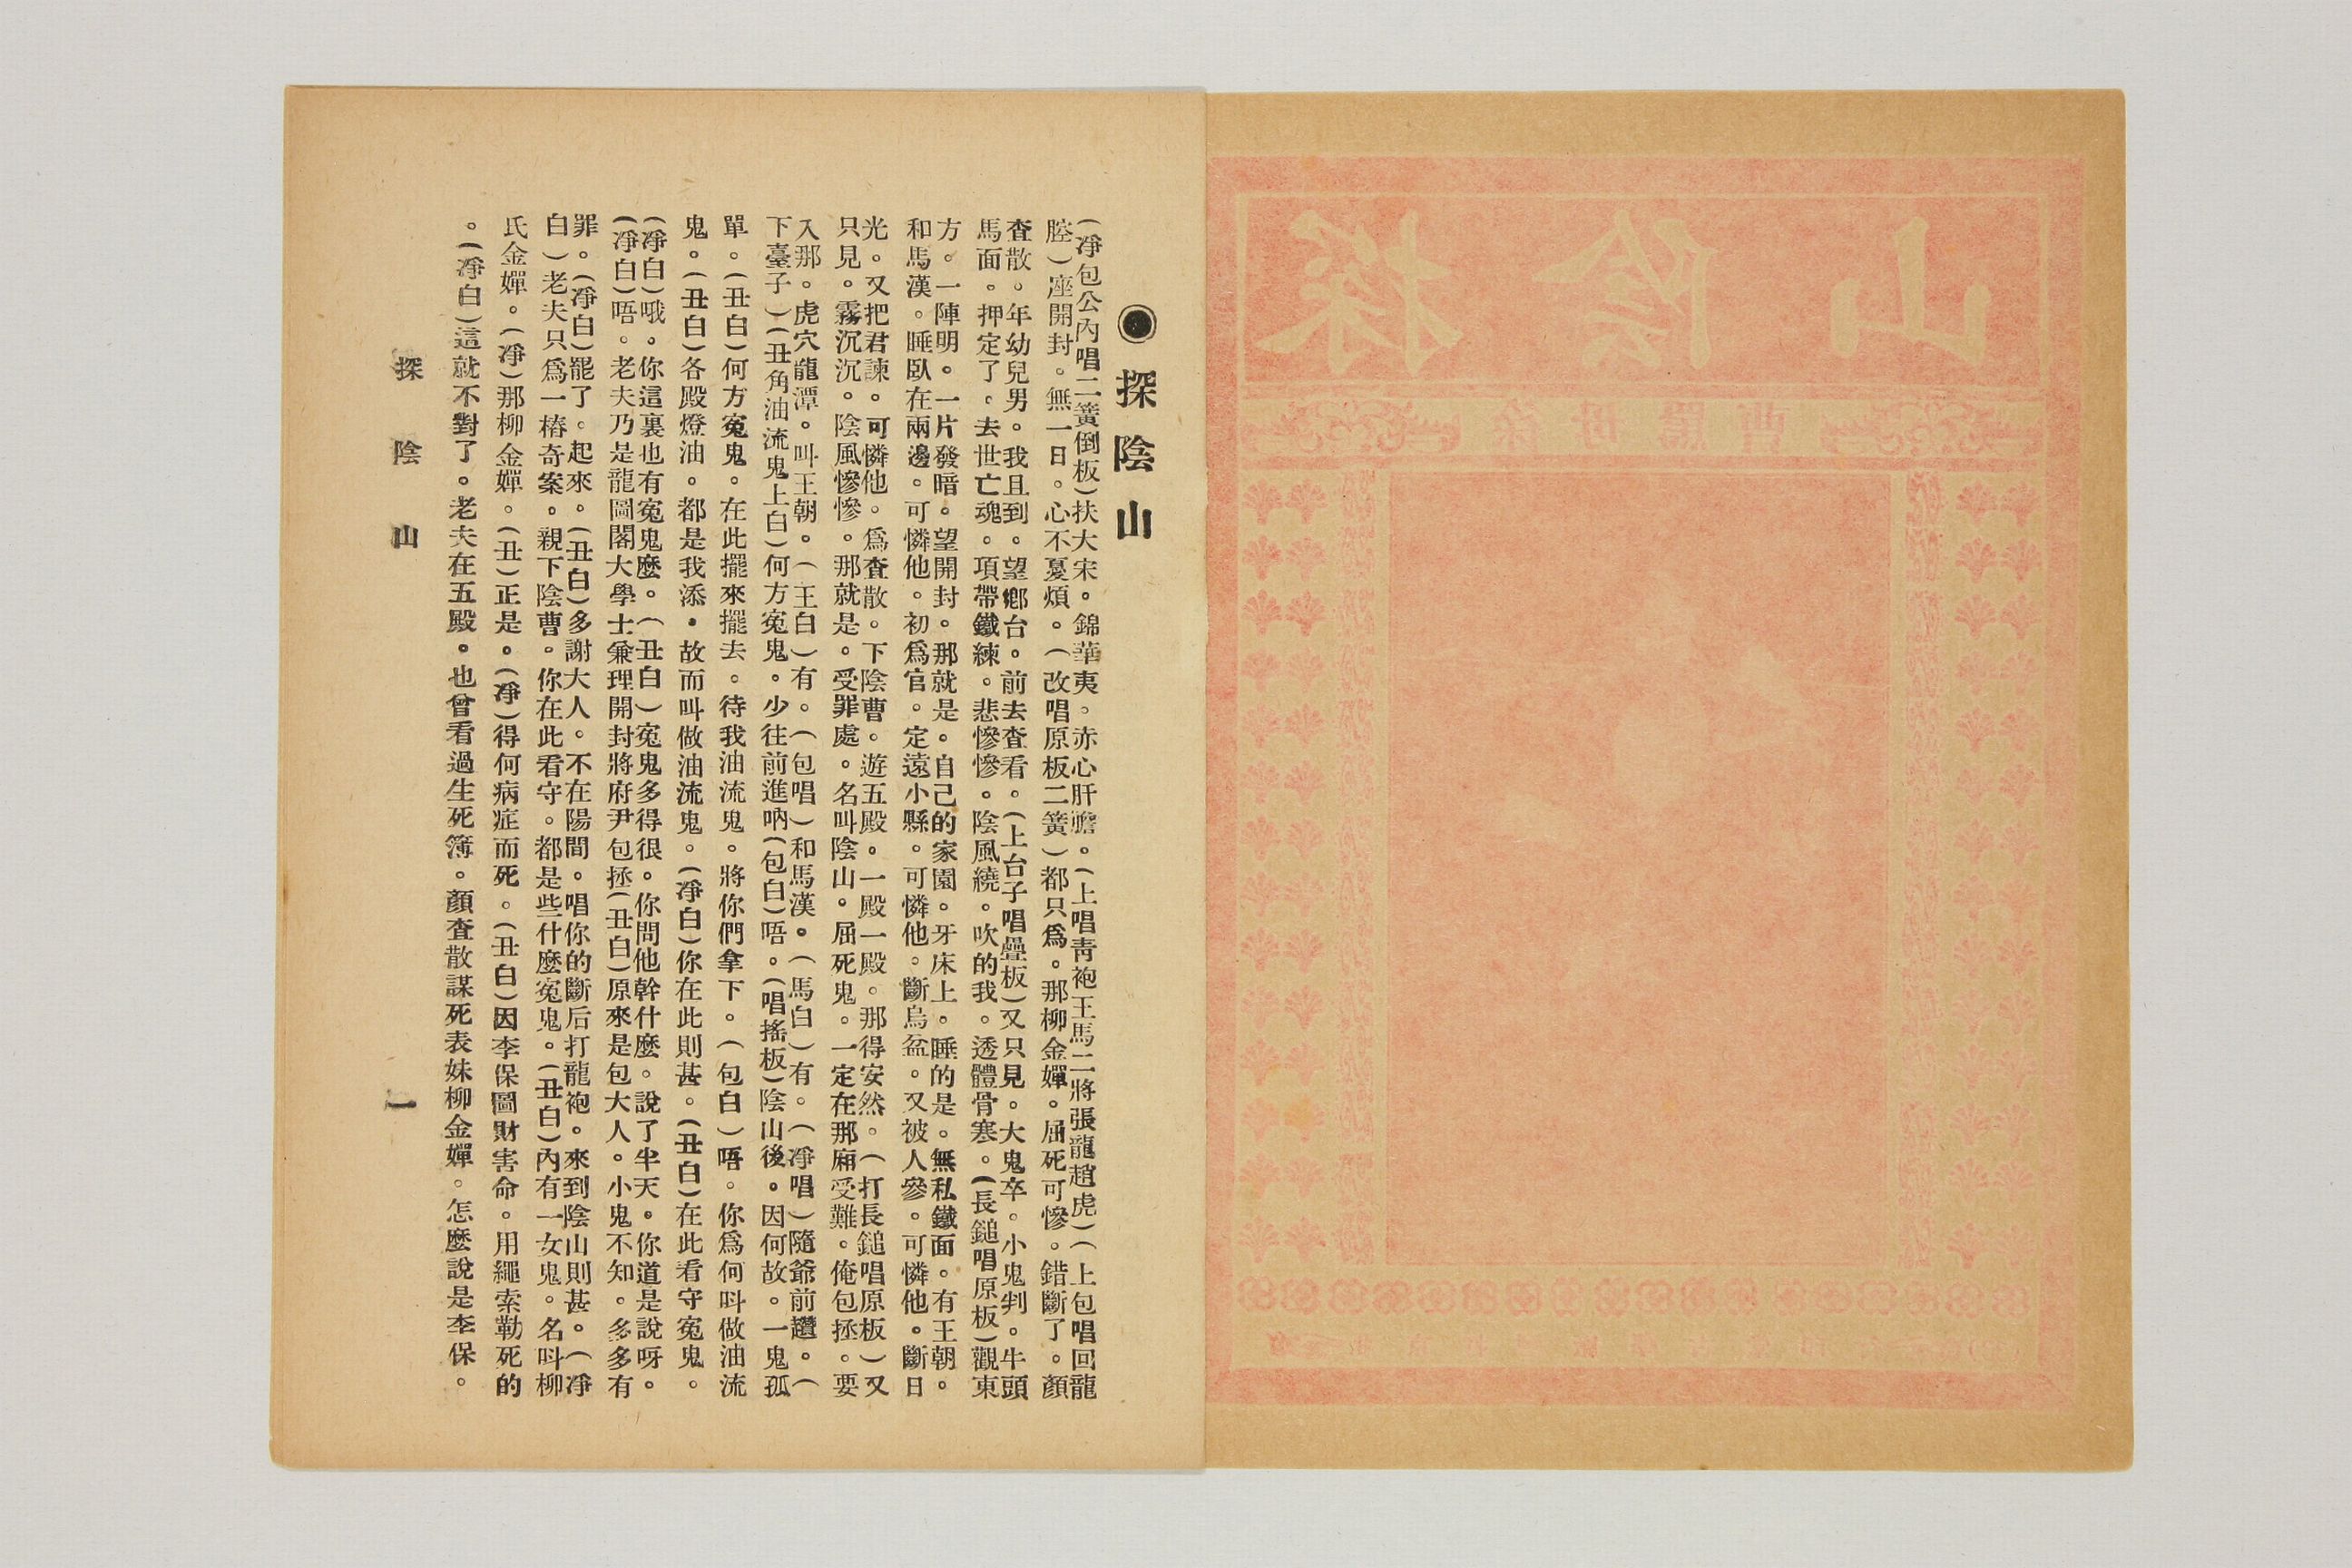 ●探陰山
(凈包公內唱二簧倒板)扶大宋。錦華夷。赤心肝膽。(上唱靑袍王馬二將張龍趙虎)(上包唱回龍
腔)座開封。無一日。心不憂煩。(改唱原板二簧)都只爲。那柳金嬋。屈死可慘。錯斷了。顏
查散。年幼兒男。我且到。望鄉台。前去查看。(上台子唱疊板)又只見。大鬼卒。小鬼判。牛頭
馬面。押定了。去世亡魂。項帶鐵練。悲慘慘。陰風繞。吹的我。透體骨寒。(長鎚唱原板)觀東
方。一陣明。一片發暗。望開封。那就是。自己的家園。牙床上。睡的是。無私鐵面。有王朝。
和馬漢。睡臥在兩邊。可憐他。初爲官。定遠小縣。可憐他。斷烏盆。又被人參。可憐他。斷日
光。又把君諫。可憐他。爲查散。下陰曹。遊五殿。一殿一殿。那得安然。(打長鎚唱原板)又
只見。霧沉沉。陰風慘慘。那就是。受罪處。名叫陰山。屈死鬼。一定在那廂受難。俺包拯。要
入那。虎穴龍潭。叫王朝。(王白)有。(包唱)和馬漢。(馬白)有。(凈唱)隨爺前趲。(
下臺子)(丑角油流鬼上白)何方寃鬼。少往前進吶(包白)唔。(唱搖板)陰山後。因何故。一鬼孤
單。(丑白)何方寃鬼。在此擺來擺去。待我油流鬼。將你們拿下。(包白)唔。你爲何呌做油流
鬼。(丑白)各殿燈油。都是我添。故而叫做油流鬼。(凈白)你在此則甚。(丑白)在此看守寃鬼。
(凈白)哦。你這裏也有寃鬼麼。(丑白)寃鬼多得很。你問他幹什麼。說了半天。你道是說呀。
(凈白)唔。老夫乃是龍圖閣大學士兼理開封將府尹包拯(丑白)原來是包大人。小鬼不知。多多有
罪。(凈白)罷了。起來。(丑白)多謝大人。不在陽間。唱你的斷后打龍袍。來到陰山則甚。(凈
白)老夫只爲一樁奇案。親下陰曹。你在此看守。都是些什麼寃鬼。(丑白)內有一女鬼。名呌柳
氏金嬋。(凈)那柳金嬋。(丑)正是。(凈)得何病症而死。(丑白)因李保圖財害命。用繩索勒死的
。(凈白)這就不對了。老夫在五殿。也曾看過生死簿。顏查散謀死表妹柳金嬋。怎麼說是李保。
探陰山 一
探陰山
曹閻